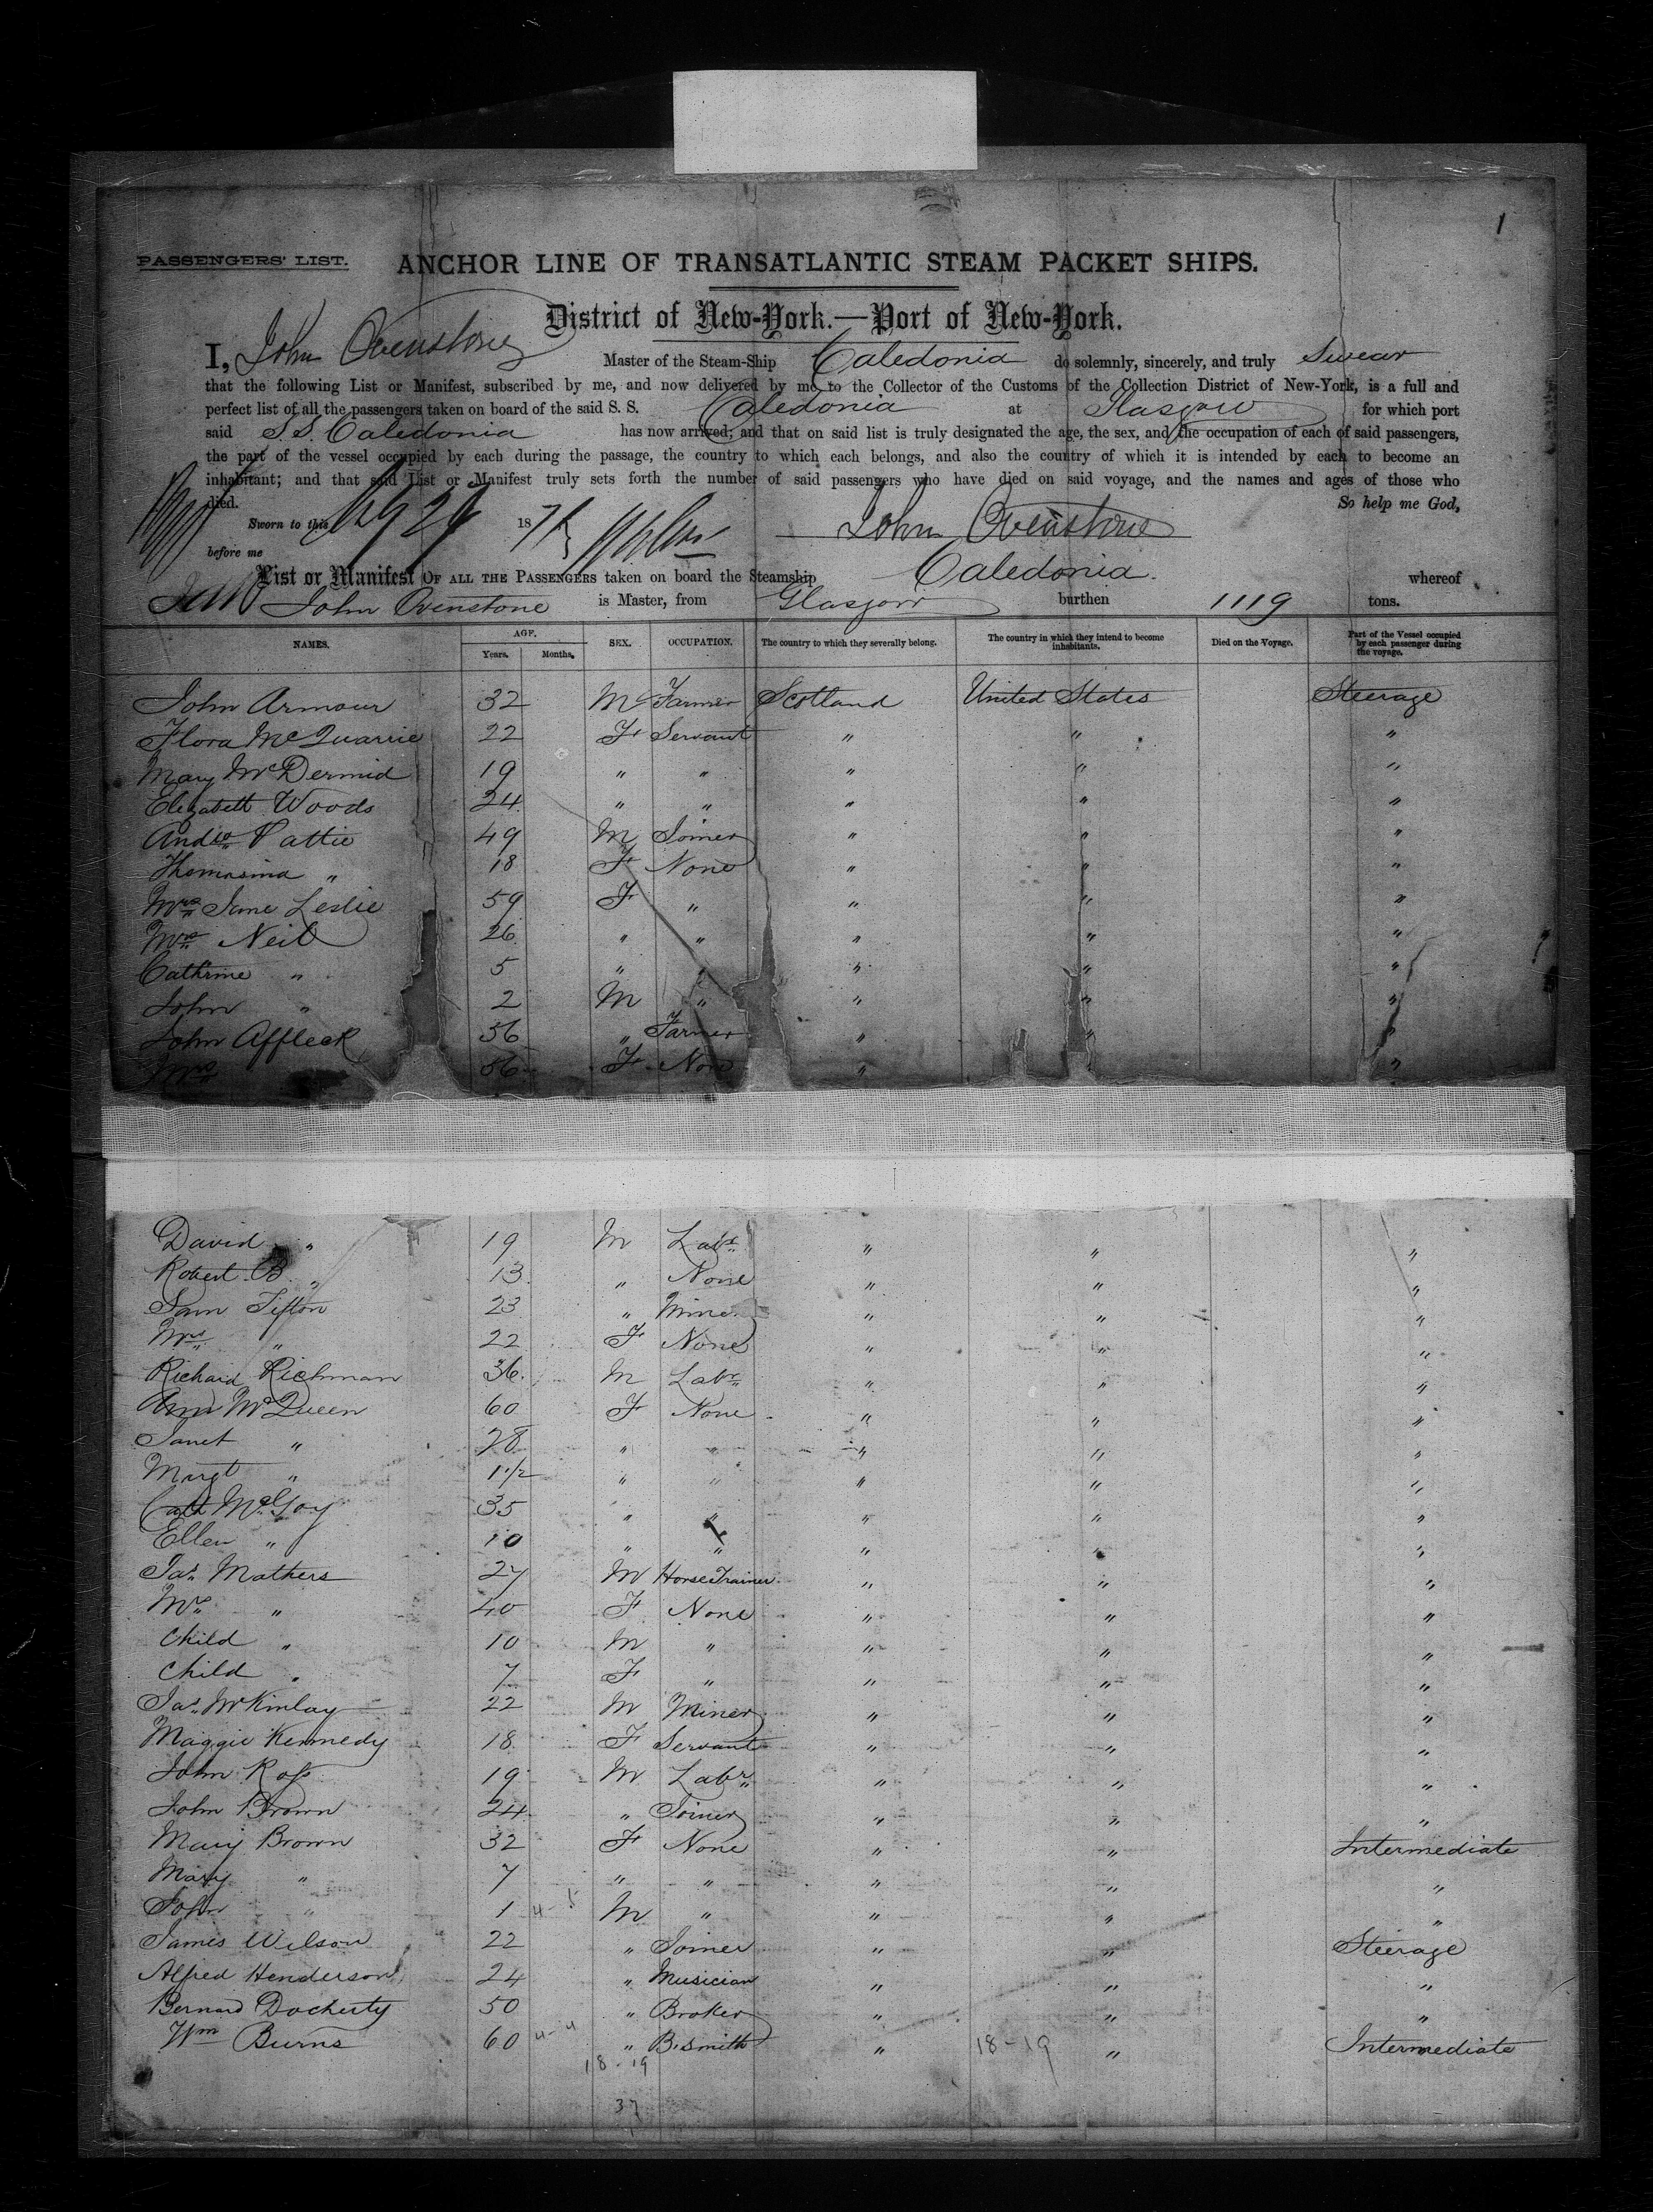 1
PASSENGERS' LIST. ANCHOR LINE OF TRANSATLANTIC STEAM PACKET SHIPS.
District of New-York.—Port of New-York.
I, John Ovenstone Master of the Steam-Ship Caledonia do solemnly, sincerely, and truly Swear
that the following List or Manifest, subscribed by me, and now delivered by me to the Collector of the Customs of the Collection District of New-York, is a full and
perfect list of all the passengers taken on board of the said S. S. Caledonia at Glasgow for which port
said S.S. Caledonia has now arrived; and that on said list is truly designated the age, the sex, and the occupation of each of said passengers,
the part of the vessel occupied by each during the passage, the country to which each belongs, and also the country of which it is intended by each to become an
inhabitant; and that said List or Manifest truly sets forth the number of said passengers who have died on said voyage, and the names and ages of those who
died. So help me God,
Sworn to this 29 187 John Ovenstone
before me
List or Manifest OF ALL THE PASSENGERS taken on board the Steamship Caledonia. whereof
John Ovenstone is Master, from Glasgow burthen 1119 tons.
NAMES. AGE. Years. Months. SEX. OCCUPATION. The country to which they severally belong. The country in which they intend to become inhabitants. Died on the Voyage. Part of the Vessel occupied by each passenger during the voyage.
John Armour 32 M Farmer Scotland United States Steerage
Flora McQuarrie 22 F Servant " " "
Mary McDermid 19 " " " " "
Elizabeth Woods 24 " " " " "
Andw Pattie 49 M Joiner " " "
Thomasina " 18 F None " " "
Mrs Jane Leslie 59 F " " " "
Mrs Neil 26 " " " " "
Cathrine " 5 " " " " "
John " 2 M " " " "
John Affleck 56 " Farmer " " "
Mrs 56 F None " "
David " 19 M Labr " " "
Robert B " 13 " None " " "
Sam Tifton 23 " Miner " " "
Mrs " 22 F None " " "
Richard Richman 36 M Labr " " "
Ann McQueen 60 F None " " "
Janet " 28 " " " " "
Margt " 1 1/2 " " " " "
Cath McGoy 35 " " " " "
Ellen " 10 " " " " "
Jas Mathers 27 M Horse Trainer " " "
Mrs " 40 F None " " "
Child " 10 M " " " "
Child " 7 F " " " "
Jas McKinlay 22 M Miner " " "
Maggie Kennedy 18 F Servant " " "
John Ross 19 M Labr " " "
John Brown 24 " Joiner " " "
Mary Brown 32 F None " " Intermediate
Mary " 7 " " " " "
John " 1 4-5 M " " " "
James Wilson 22 " Joiner " " Steerage
Alfred Henderson 24 " Musician " " "
Bernard Docherty 50 " Broker " " "
Wm Burns 60 4-4 " B.smith " 18-19 " Intermediate
18-19
37